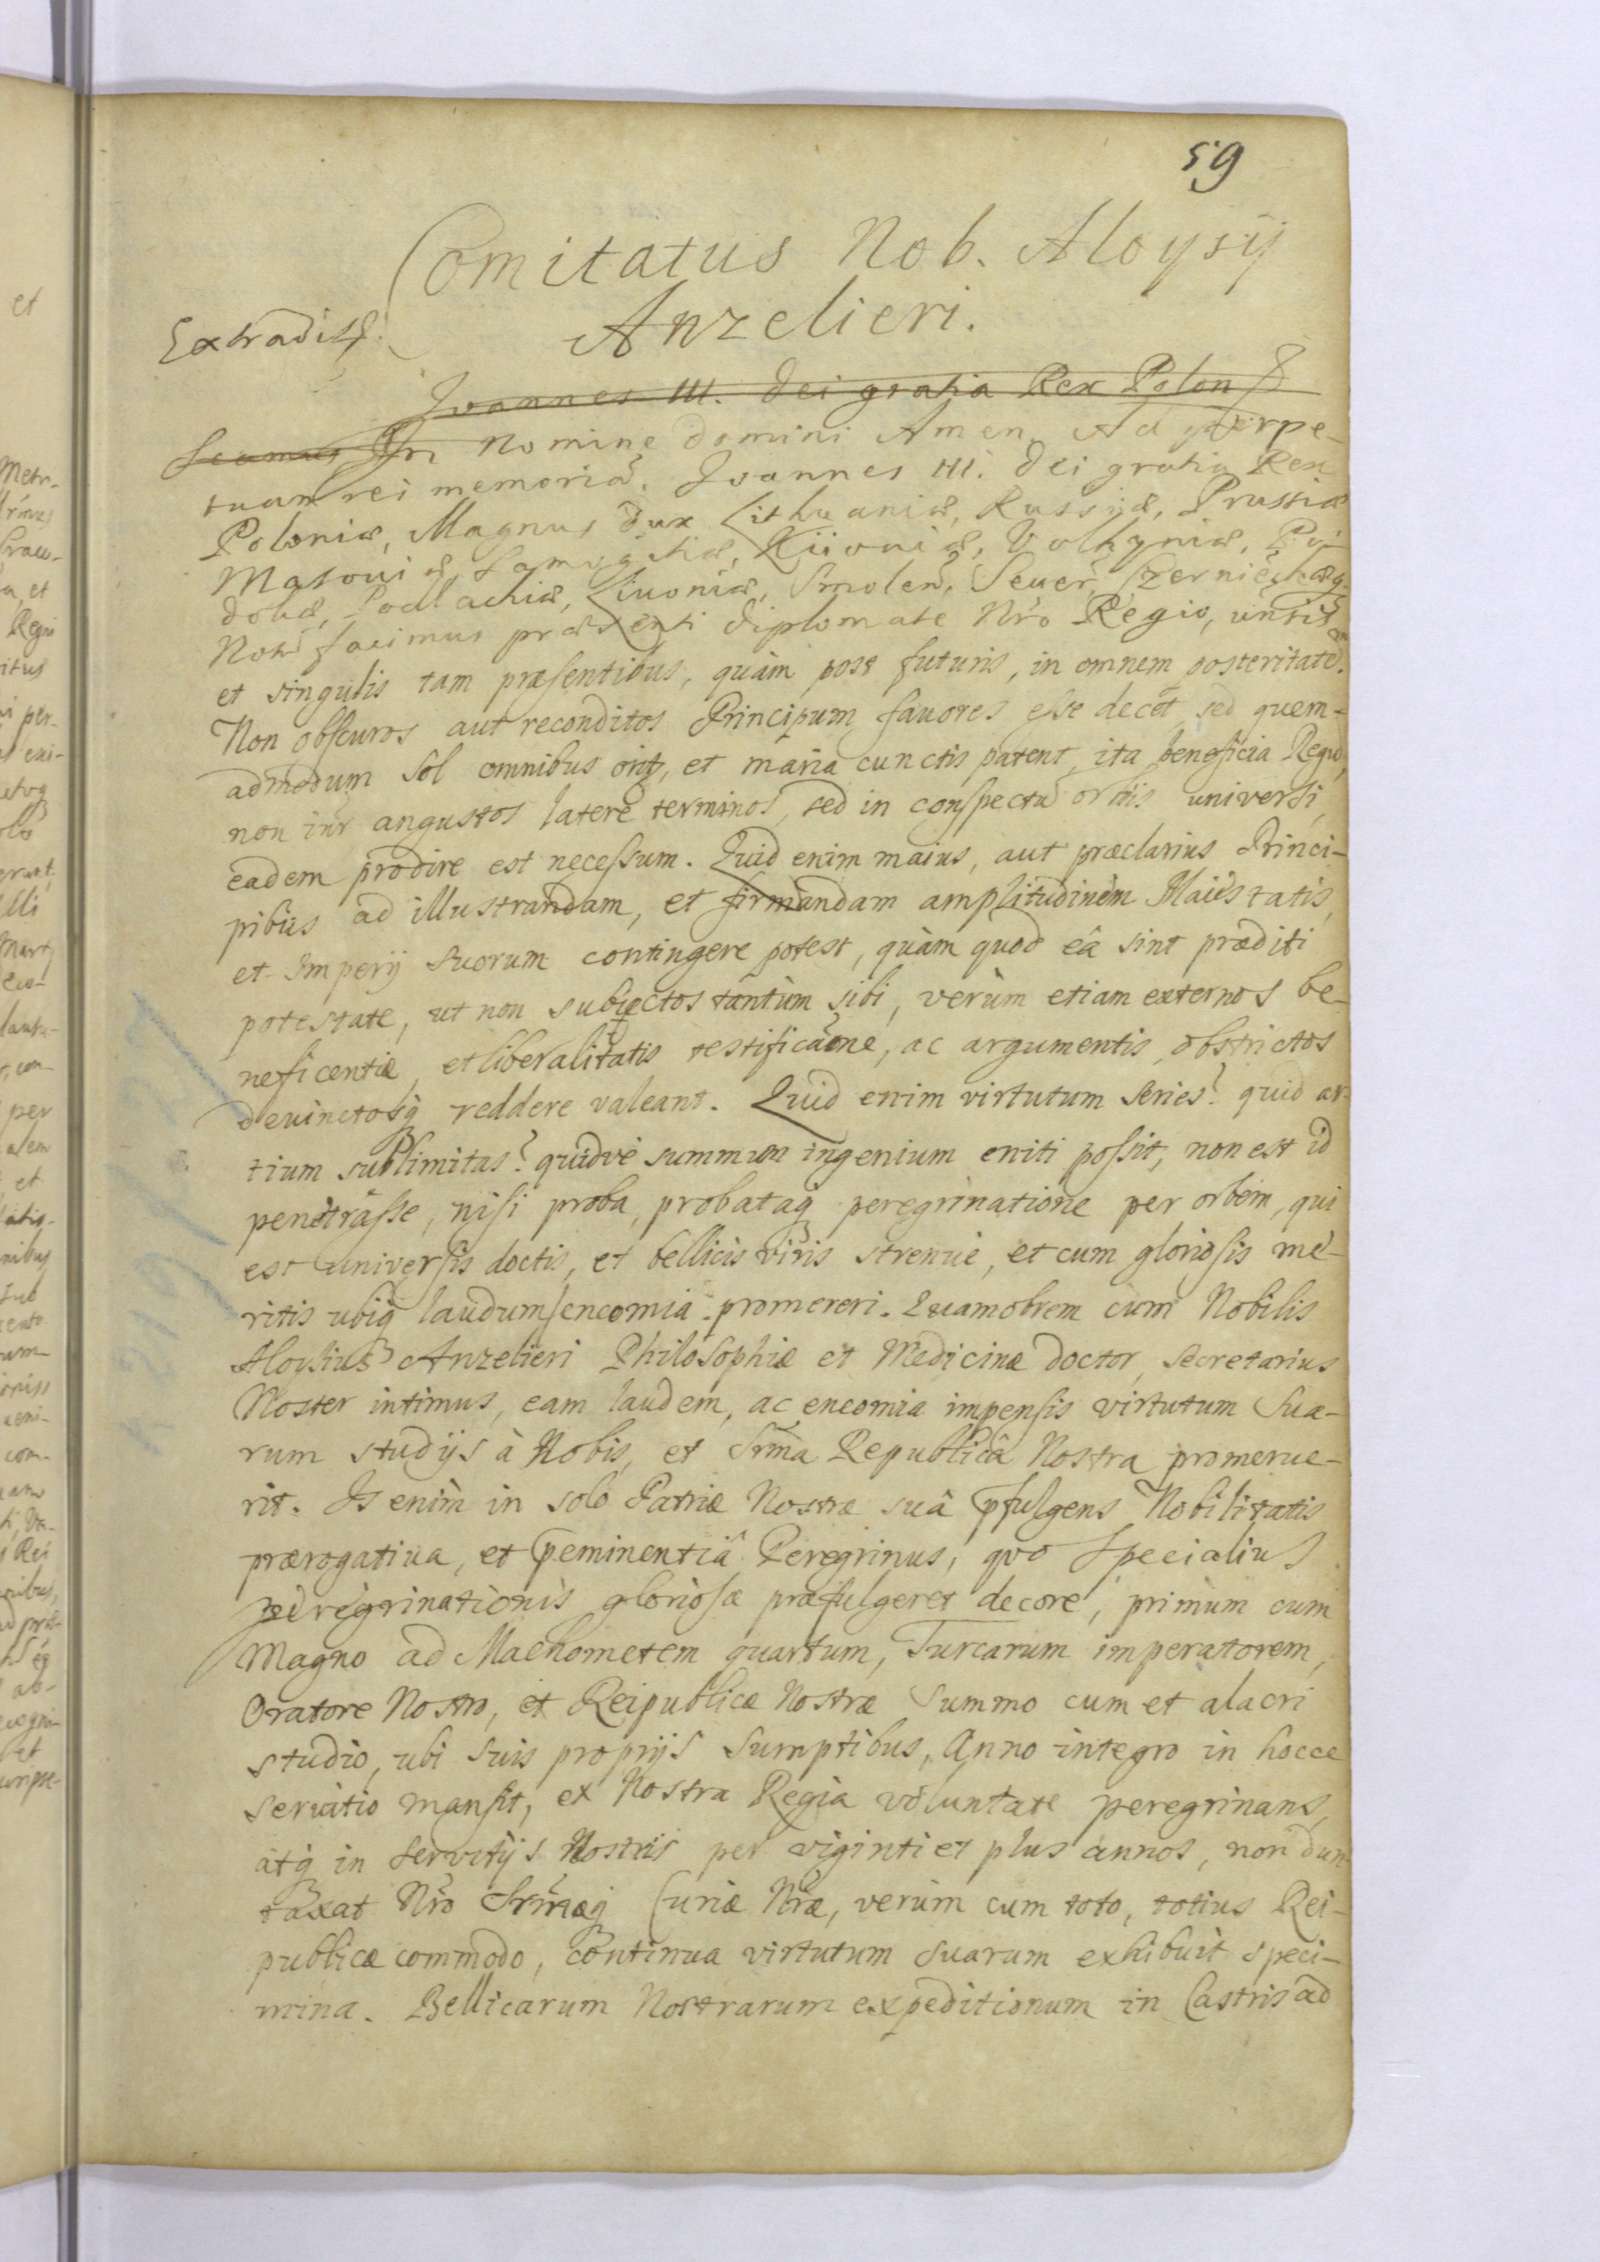 59
Comitatus Nob. Aloysij
Anzelieri.
Extradit
Joannes III. Dei gratia Rex Polon
In Nomine Domini Amen. Ad perpe-
tuam rei memoriã. Joannes III. Dei gratia Rex
Poloniæ, Magnus Dux Lithuaniæ, Russiæ, Prussiæ
Masoviæ Samogitiæ, Kijoviæ, Volhyniæ, Po-
doliæ, Podlachiæ, Livoniæ, Smolen̄, Sever̄, Czerniechæq
Notũ facimus præsenti Diplomate Nr̃o Regio, unsis
et singulis tam præsentibus, quàm post futuris, in omnem posteritatẽ.
Non obscuros aut reconditos Principum favores esse decet sed quem-
admodum Sol omnibus orit̃, et maria cunctis patent, ita beneficia Regũ,
non int̃ angustos latere terminos, sed in conspectu orbis universi,
eadem prodire est necessum. Quid enim maius, aut præclarius Princi-
pibus ad illustrandam, et firmandam amplitudinem Maiestatis,
et Imperij suorum contingere potest, quàm quod eâ sint præditi
potestate, ut non subiectos tantùm sibi, verùm etiam externos be-
neficentiæ, et liberalitatis testificãone, ac argumentis, obstrictos
devinctosq̃ reddere valeant. Quid enim virtutum series? quid ar-
tium sublimitas? quidve summum ingenium eniti possit, non est id
penetrâsse, nisi proba, probataq̃ peregrinatione per orbem, qui
est universis doctis, et bellicis viris strenue, et cum gloriosis me-
ritis ubiq̃ laudum encomia promereri. Quamobrem cum Nobilis
Aloysius Anzelieri Philosophiæ et Medicinæ Doctor, Secretarius
Noster intimus, eam laudem, ac encomia impensis virtutum Sua-
rum studijs à Nobis, et Srm̃a Republicâ Nostra promerue-
rit. Is enim in solo Patriæ Nostræ suâ p̃fulgens Nobilitatis
prærogativa, et p̃eminentiâ Peregrinus, quo specialius
peregrinationis gloriosæ præfulgeret decore, primùm cum
Magno ad Machometem quartum, Turcarum imperatorem,
Oratore Nostro, et Reipublicæ Nostræ summo cum et alacri
studio, ubi suis proprijs sumptibus, Anno integro in hocce
servitio mansit, ex Nostra Regia voluntate peregrinans,
atq̃ in servitijs Nostris per viginti et plus annos, non dun-
taxat Nr̃o Srm̃æq̃ Curiæ Nr̃æ, verùm cum toto, totius Rei-
publicæ commodo, continua virtutum suarum exhibuit speci-
mina. Bellicarum Nostrarum expeditionum in Castris ad